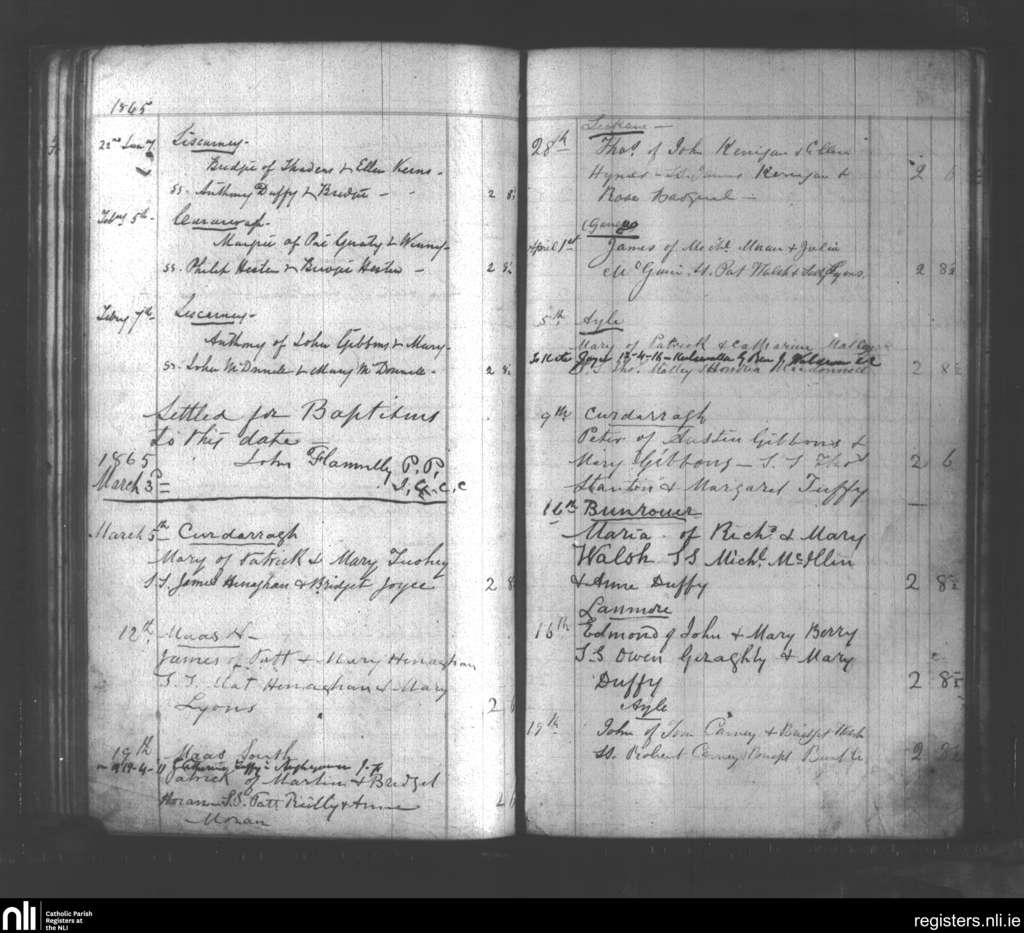 1865
22nd Jany Liscarney -
Bridgie of Thadeus & Ellen Kerns -
ss. Anthony Duffy & Bridgie - 2 8½
Feby 5th -
Margie of Pat Geraty & Winny -
ss. Philip Hester & Bridgie Hester - 2 8½
Feby 7th - Liscarney -
Anthony of John Gibbons & Mary -
ss. John McDonnell & Mary McDonnell - 2 8½
Settled for Baptisms
to this date
1865 John Flannelly P.P.
March 3rd C.C
March 5th Curdarragh
Mary of Patrick & Mary Tuohey
S.S. James Henaghan & Bridget Joyce 2 8
12th Maas N -
James of Patt & Mary Henaghan
S.S. Mat Henaghan & Mary
Lyons 2 6
19th Maas South
19-4- Catherine Duffy
Patrick of Martin & Bridget
Horan S.S. Patt Reilly & Anne
Moran 2 6
28th Thos. of John Kerrigan & Ellen
Hynes - SS. James Kerrigan & 2 6
Rose
April 1st James of Michl. Moran & Julia
McGuin. SS. Pat Walsh & Lyons. 2 8½
5th Ayle
Mary of Patrick & Catharine Malley
Joyce 13-4-16 - by Rev J.
S.S. Thos. Malley & Honoria Macdonnell 2 8½
9th Curdarragh
Peter of Austin Gibbons &
Mary Gibbons - S.S Thos 2 6
Stanton & Margaret Duffy
16th Bunrower
Maria of Richd. & Mary
Walsh SS Michl. McIllin
& Anne Duffy 2 8½
Lanmore
16th Edmond of John & Mary Berry
S.S Owen Geraghty & Mary
Duffy 2 8½
Ayle
19th John of Tom Carney & Bridget
SS. Robert Carney 2
nli Catholic Parish
Registers at
the NLI
registers.nli.ie